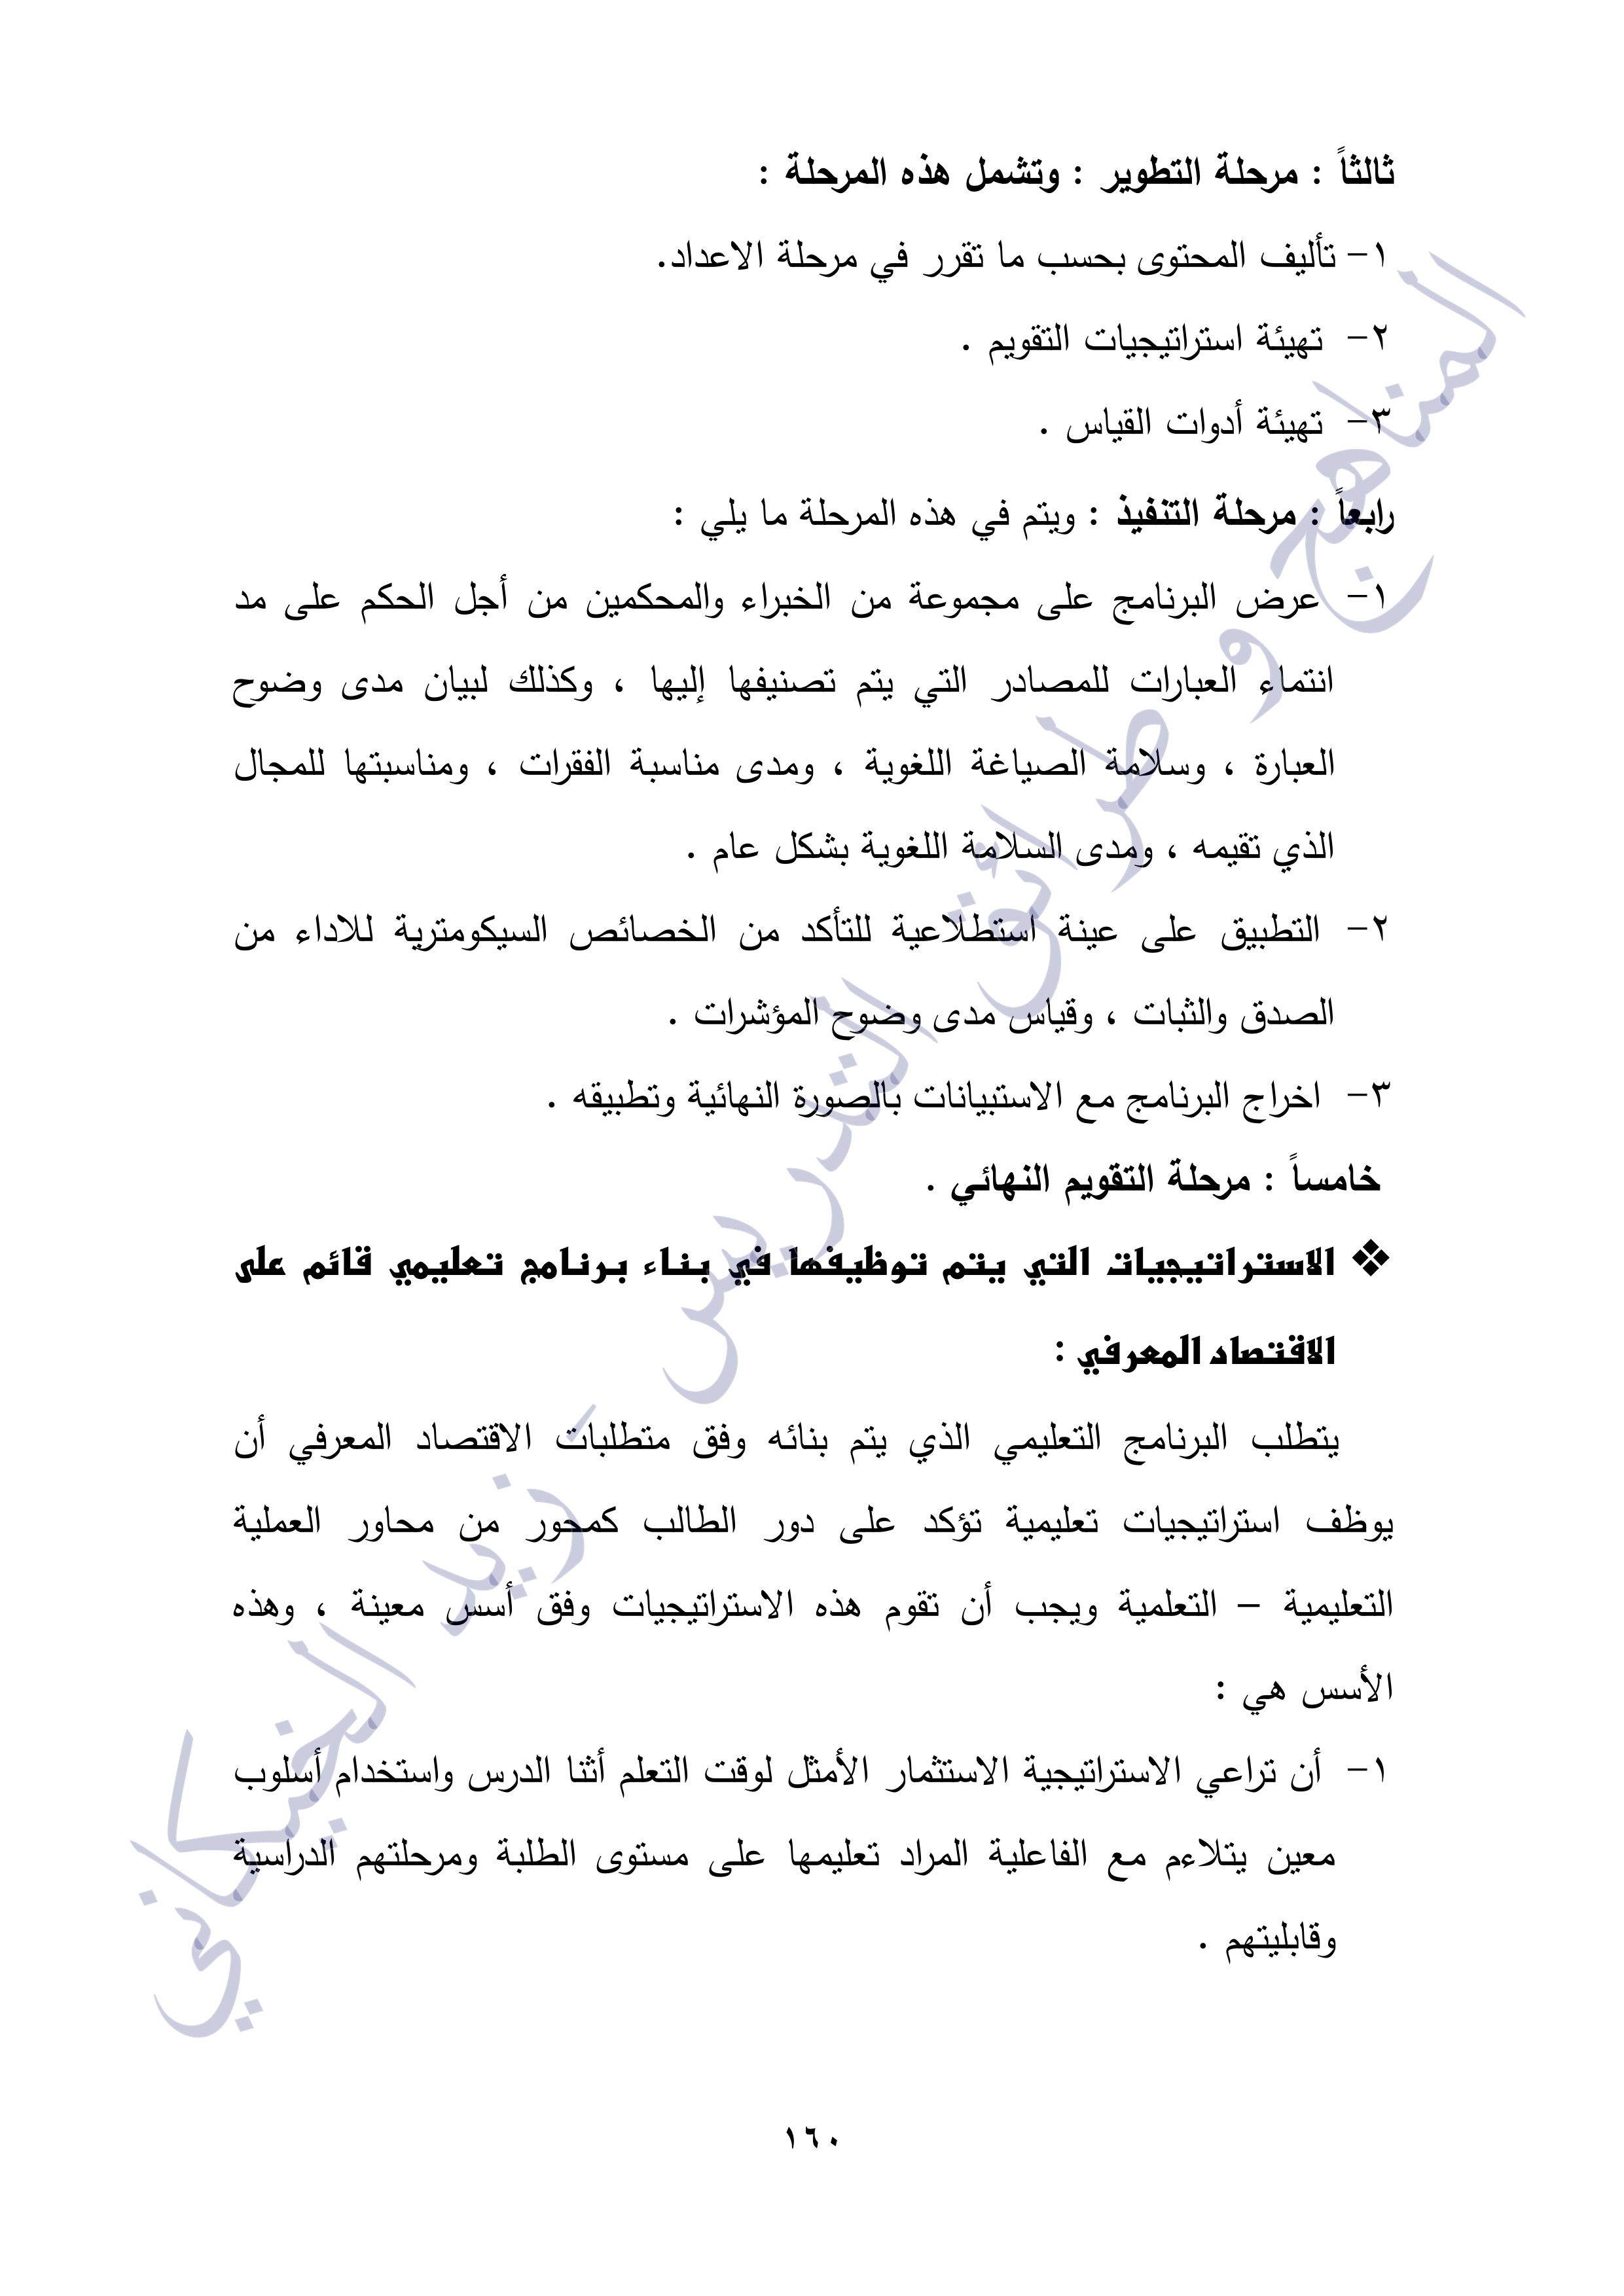 ثالثاً : مرحلة التطوير : وتشمل هذه المرحلة :
١- تأليف المحتوى بحسب ما تقرر في مرحلة الاعداد.
٢- تهيئة استراتيجيات التقويم .
٣- تهيئة أدوات القياس .
رابعاً : مرحلة التنفيذ : ويتم في هذه المرحلة ما يلي :
١- عرض البرنامج على مجموعة من الخبراء والمحكمين من أجل الحكم على مد
انتماء العبارات للمصادر التي يتم تصنيفها إليها ، وكذلك لبيان مدى وضوح
العبارة ، وسلامة الصياغة اللغوية ، ومدى مناسبة الفقرات ، ومناسبتها للمجال
الذي تقيمه ، ومدى السلامة اللغوية بشكل عام .
٢- التطبيق على عينة استطلاعية للتأكد من الخصائص السيكومترية للاداء من
الصدق والثبات ، وقياس مدى وضوح المؤشرات .
٣- اخراج البرنامج مع الاستبيانات بالصورة النهائية وتطبيقه .
خامساً : مرحلة التقويم النهائي .
❖ الاستراتيجيات التي يتم توظيفها في بناء برنامج تعليمي قائم على
الاقتصاد المعرفي :
يتطلب البرنامج التعليمي الذي يتم بنائه وفق متطلبات الاقتصاد المعرفي أن
يوظف استراتيجيات تعليمية تؤكد على دور الطالب كمحور من محاور العملية
التعليمية – التعلمية ويجب أن تقوم هذه الاستراتيجيات وفق أسس معينة ، وهذه
الأسس هي :
١- أن تراعي الاستراتيجية الاستثمار الأمثل لوقت التعلم أثنا الدرس واستخدام أسلوب
معين يتلاءم مع الفاعلية المراد تعليمها على مستوى الطلبة ومرحلتهم الدراسية
وقابليتهم .
المناهج و طرائق التدريس - زيد الخيكاني
١٦٠